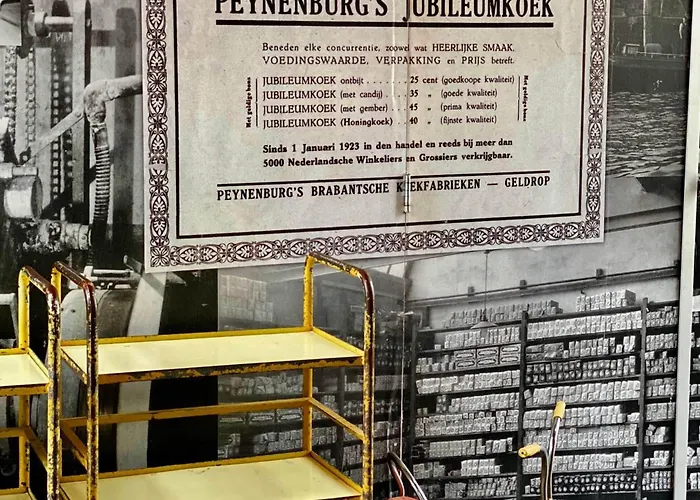 PEYNENBURG'S JUBILEUMKOEK
Beneden elke concurrentie, zoowel wat HEERLIJKE SMAAK,
VOEDINGSWAARDE, VERPAKKING en PRIJS betreft.
Met geldige bons
JUBILEUMKOEK ontbijt . . . . . . . 25 cent (goedkoope kwaliteit)
JUBILEUMKOEK (met candij) . . . 35 „ (goede kwaliteit)
JUBILEUMKOEK (met gember) . . 45 „ (prima kwaliteit)
JUBILEUMKOEK (Honingkoek) . . 40 „ (fijnste kwaliteit)
Met geldige bons
Sinds 1 Januari 1923 in den handel en reeds bij meer dan
5000 Nederlandsche Winkeliers en Grossiers verkrijgbaar.
PEYNENBURG'S BRABANTSCHE KOEKFABRIEKEN — GELDROP